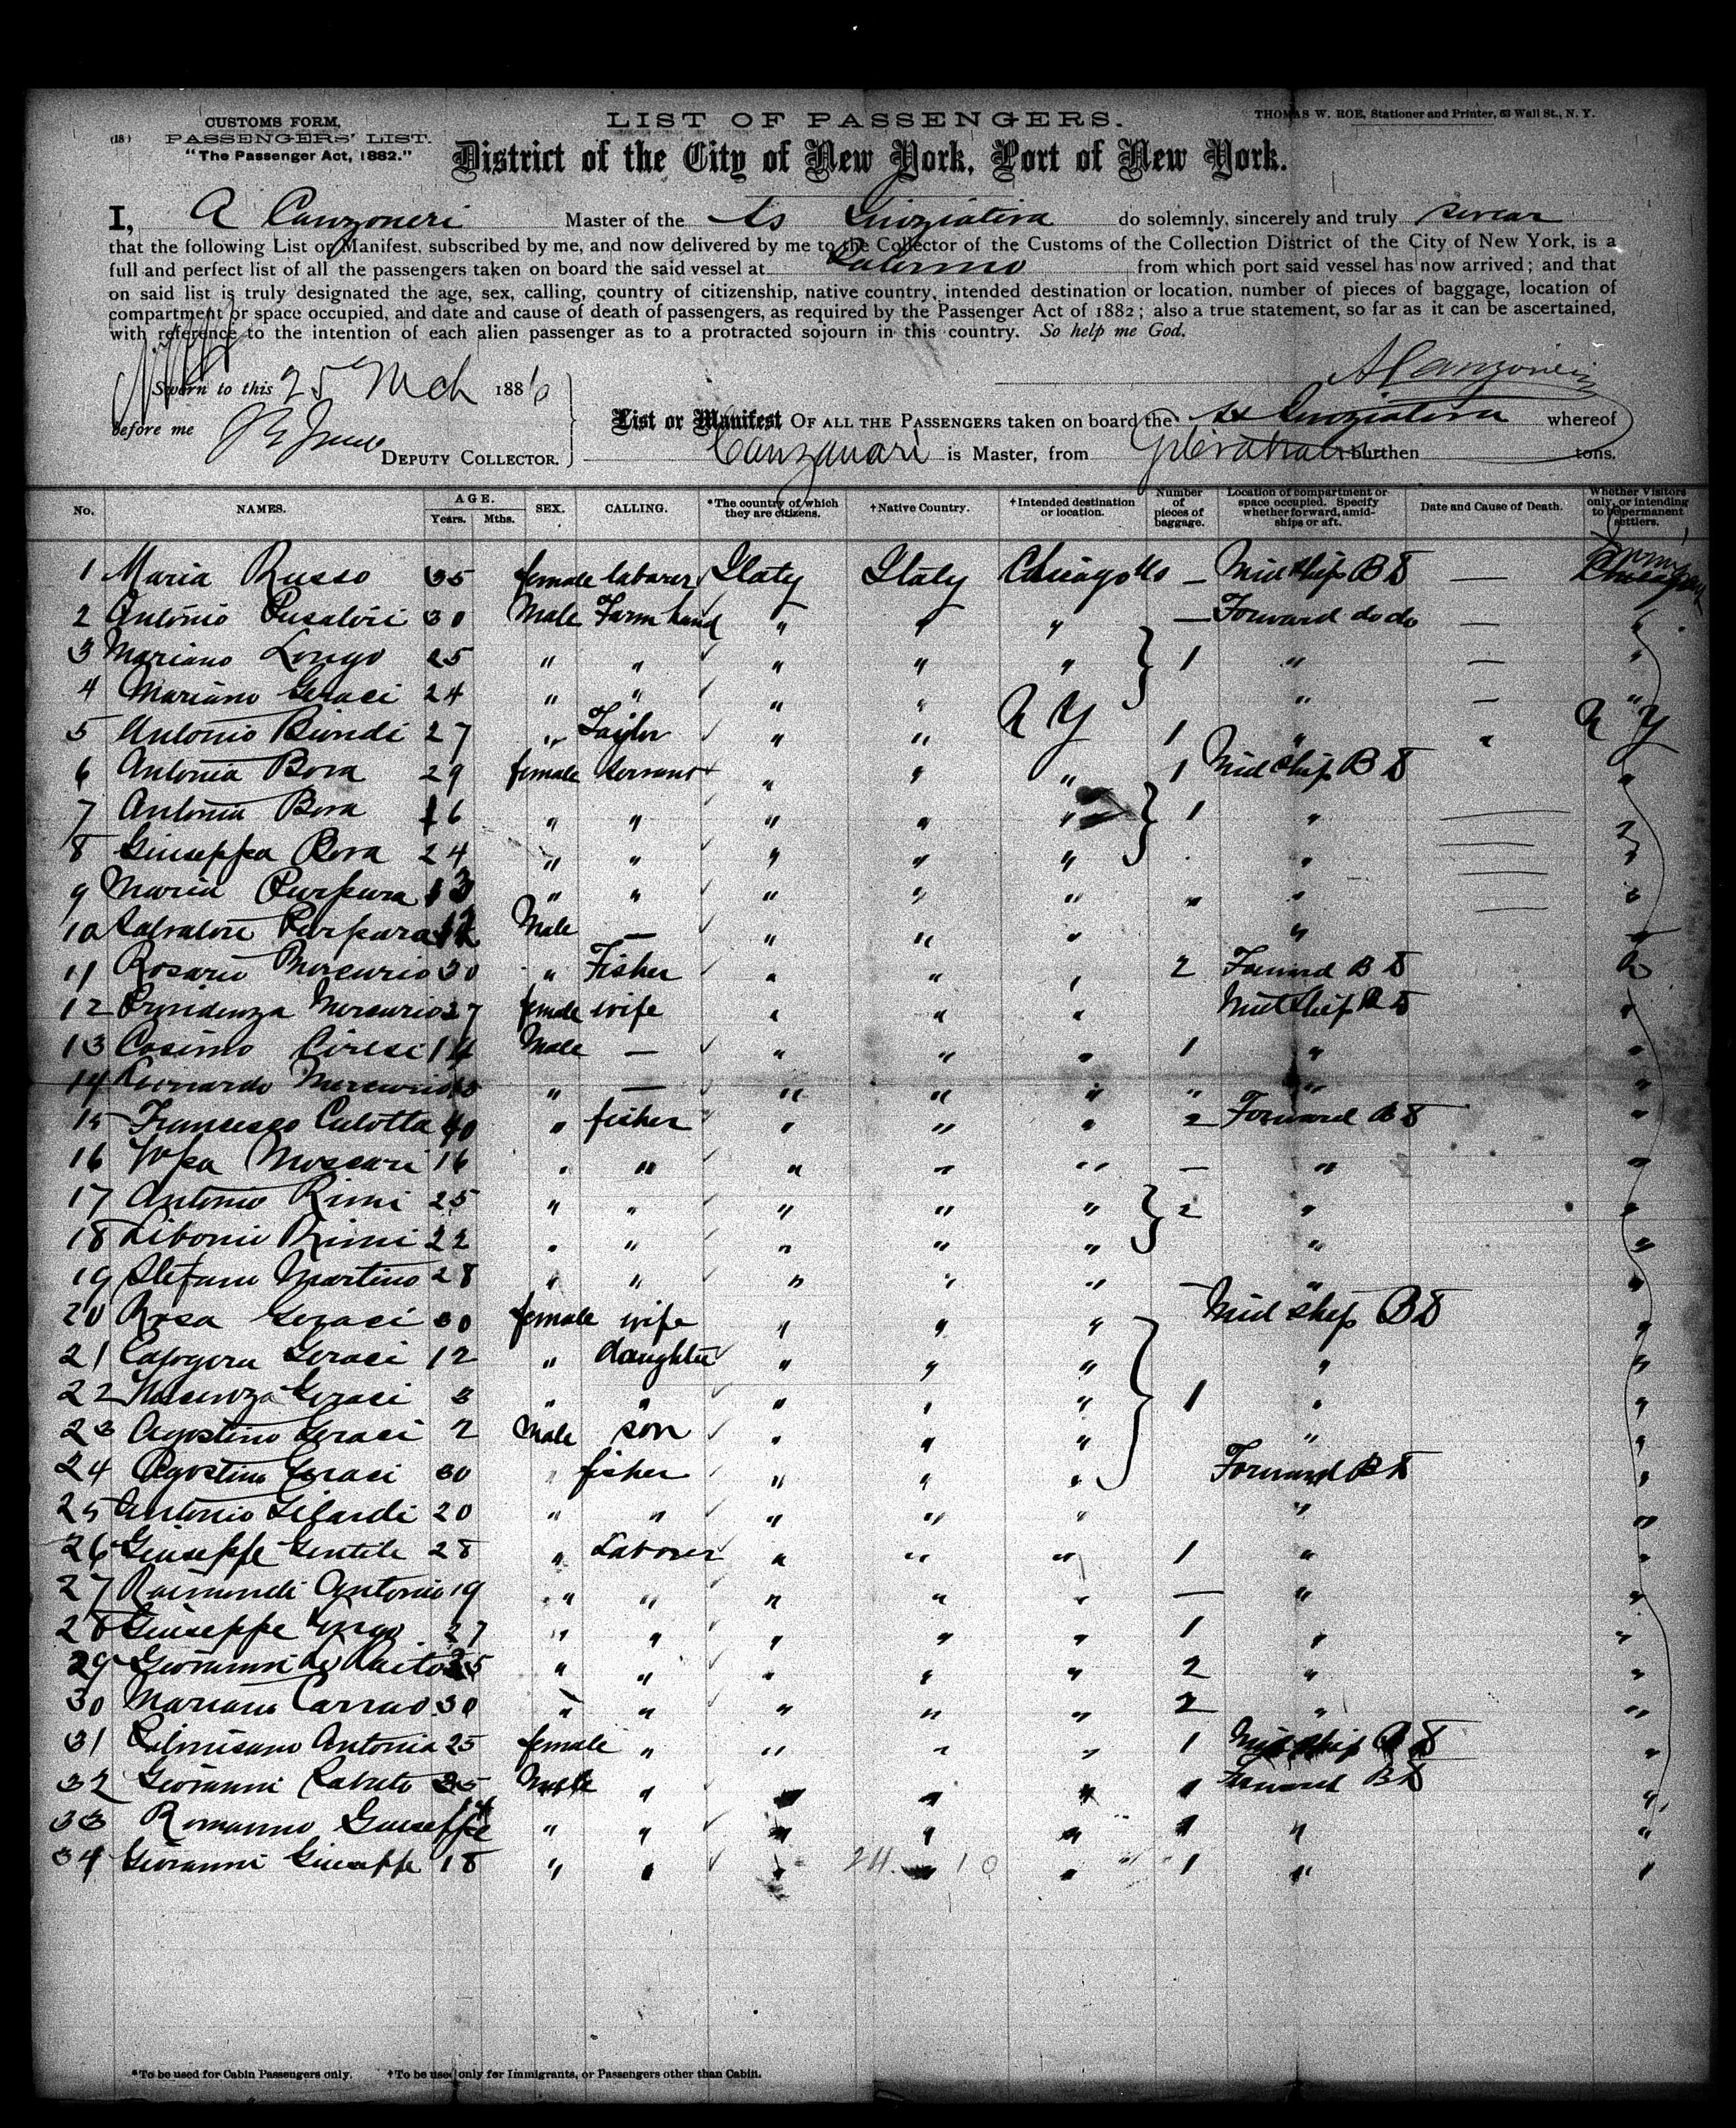 CUSTOMS FORM,
(18) PASSENGERS' LIST.
"The Passenger Act, 1882."
LIST OF PASSENGERS.
THOMAS W. ROE, Stationer and Printer, 63 Wall St., N. Y.
District of the City of New York, Port of New York.
I, A Canzoneri Master of the do solemnly, sincerely and truly swear
that the following List or Manifest, subscribed by me, and now delivered by me to the Collector of the Customs of the Collection District of the City of New York, is a
full and perfect list of all the passengers taken on board the said vessel at Palermo from which port said vessel has now arrived; and that
on said list is truly designated the age, sex, calling, country of citizenship, native country, intended destination or location, number of pieces of baggage, location of
compartment or space occupied, and date and cause of death of passengers, as required by the Passenger Act of 1882; also a true statement, so far as it can be ascertained,
with reference to the intention of each alien passenger as to a protracted sojourn in this country. So help me God.
A Canzoneri
Sworn to this 25 Mch 1886
before me
DEPUTY COLLECTOR.
List or Manifest OF ALL THE PASSENGERS taken on board the whereof
is Master, from burthen tons.
No. NAMES. AGE. Years. Mths. SEX. CALLING. *The country of which they are citizens. †Native Country. †Intended destination or location. Number of pieces of baggage. Location of compartment or space occupied. Specify whether forward, amidships or aft. Date and Cause of Death. Whether Visitors only, or intending to be permanent settlers.
1 Maria Russo 35 female laborer Italy Italy Chicago Ills — Mid Ship B D —
2 Antonio 30 Male Farm hand " " " — Forward do do — "
3 Mariano Longo 25 " " " " " 1 " — "
4 Mariano Geraci 24 " " " " " — "
5 Antonio Biondi 27 " Taylor " " N Y 1 " " N Y
6 Antonia Bova 29 female Servant " " " 1 Mid Ship B D "
7 Antonia Bova 16 " " " " " 1 "
8 Giuseppa Bova 24 " " " " " " "
9 Maria Purpura 13 " " " " " " " "
10 Salvatore Purpura Male — " " " "
11 Rosario Mercurio 30 " Fisher " " " 2 Forward B D
12 Providenza Mercurio 27 female wife " " " Mid Ship B D "
13 Cosimo Ciresi 14 Male — " " " 1 " "
14 Leonardo Mercurio " — " " " " " "
15 Francesco Culotta 40 " fisher " " " 2 Forward B D "
16 16 " " " " " — " "
17 Antonio Rimi 25 " " " " " 2 " "
18 Rimi 22 " " " " " " "
19 Stefano Martino 28 " " " " " — " "
20 Rosa Geraci 30 female wife " " " Mid Ship B D "
21 Calogera Geraci 12 " daughter " " " " "
22 Geraci 3 " " " " " 1 " "
23 Agostino Geraci 2 Male son " " " " "
24 Agostino Geraci 30 " fisher " " " Forward B D "
25 Antonio Gilardi 20 " " " " " " "
26 Giuseppe Gentile 28 " Laborer " " " 1 " "
27 Raimondi Antonio 19 " " " " " — " "
28 Giuseppe 27 " " " " " 1 " "
29 Giovanni 35 " " " " " 2 " "
30 Mariano Carrao 30 " " " " " 2 " "
31 Antonia 25 female " " " " 1 Mid Ship B D "
32 Giovanni 35 Male " " " " 1 Forward B D "
33 Romanno Giuseppe " " " " " 1 " "
34 Giovanni Giuseppe 18 " " " " " 1 " "
*To be used for Cabin Passengers only. †To be used only for Immigrants, or Passengers other than Cabin.